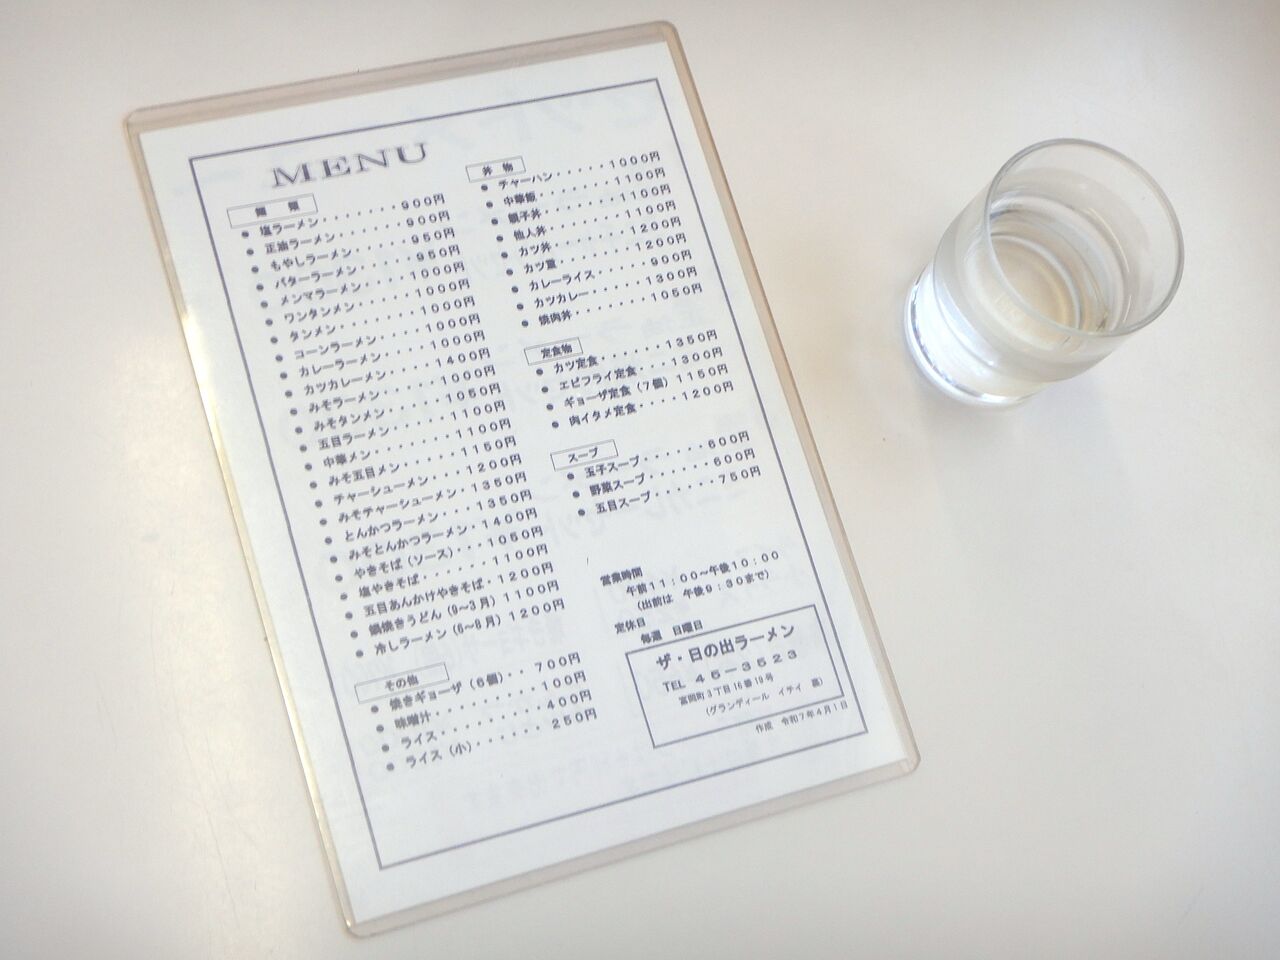 MENU
麺 類
● 塩ラーメン・・・・・・・・900円
● 正油ラーメン・・・・・・・900円
● もやしラーメン・・・・・・950円
● バターラーメン・・・・・・950円
● メンマラーメン・・・・・・1000円
● ワンタンメン・・・・・・・1000円
● タンメン・・・・・・・・・1000円
● コーンラーメン・・・・・・1000円
● カレーラーメン・・・・・・1000円
● カツカレーメン・・・・・・1400円
● みそラーメン・・・・・・・1000円
● みそタンメン・・・・・・・1050円
● 五目ラーメン・・・・・・・1100円
● 中華メン・・・・・・・・・1100円
● みそ五目メン・・・・・・・1150円
● チャーシューメン・・・・・1200円
● みそチャーシューメン・・・1350円
● とんかつラーメン・・・・・1350円
● みそとんかつラーメン・・・1400円
● やきそば(ソース)・・・・1050円
● 塩やきそば・・・・・・・・1100円
● 五目あんかけやきそば・・・1200円
● 鍋焼きうどん(9~3月)1100円
● 冷しラーメン(6~8月)1200円
その他
● 焼きギョーザ(6個)・・・700円
● 味噌汁・・・・・・・・・・100円
● ライス・・・・・・・・・・400円
● ライス(小)・・・・・・・250円
丼 物
● チャーハン・・・・・1000円
● 中華飯・・・・・・・1100円
● 親子丼・・・・・・・1100円
● 他人丼・・・・・・・1100円
● カツ丼・・・・・・・1200円
● カツ重・・・・・・・1200円
● カレーライス・・・・・900円
● カツカレー・・・・・1300円
● 焼肉丼・・・・・・・1050円
定食物
● カツ定食・・・・・・1350円
● エビフライ定食・・・1300円
● ギョーザ定食(7個)1150円
● 肉イタメ定食・・・・1200円
スープ
● 玉子スープ・・・・・・600円
● 野菜スープ・・・・・・600円
● 五目スープ・・・・・・750円
営業時間
午前11:00~午後10:00
(出前は 午後9:30まで)
定休日
毎週 日曜日
ザ・日の出ラーメン
TEL 45-3523
富岡町3丁目16番19号
(グランディール イチイ 裏)
作成 令和7年4月1日